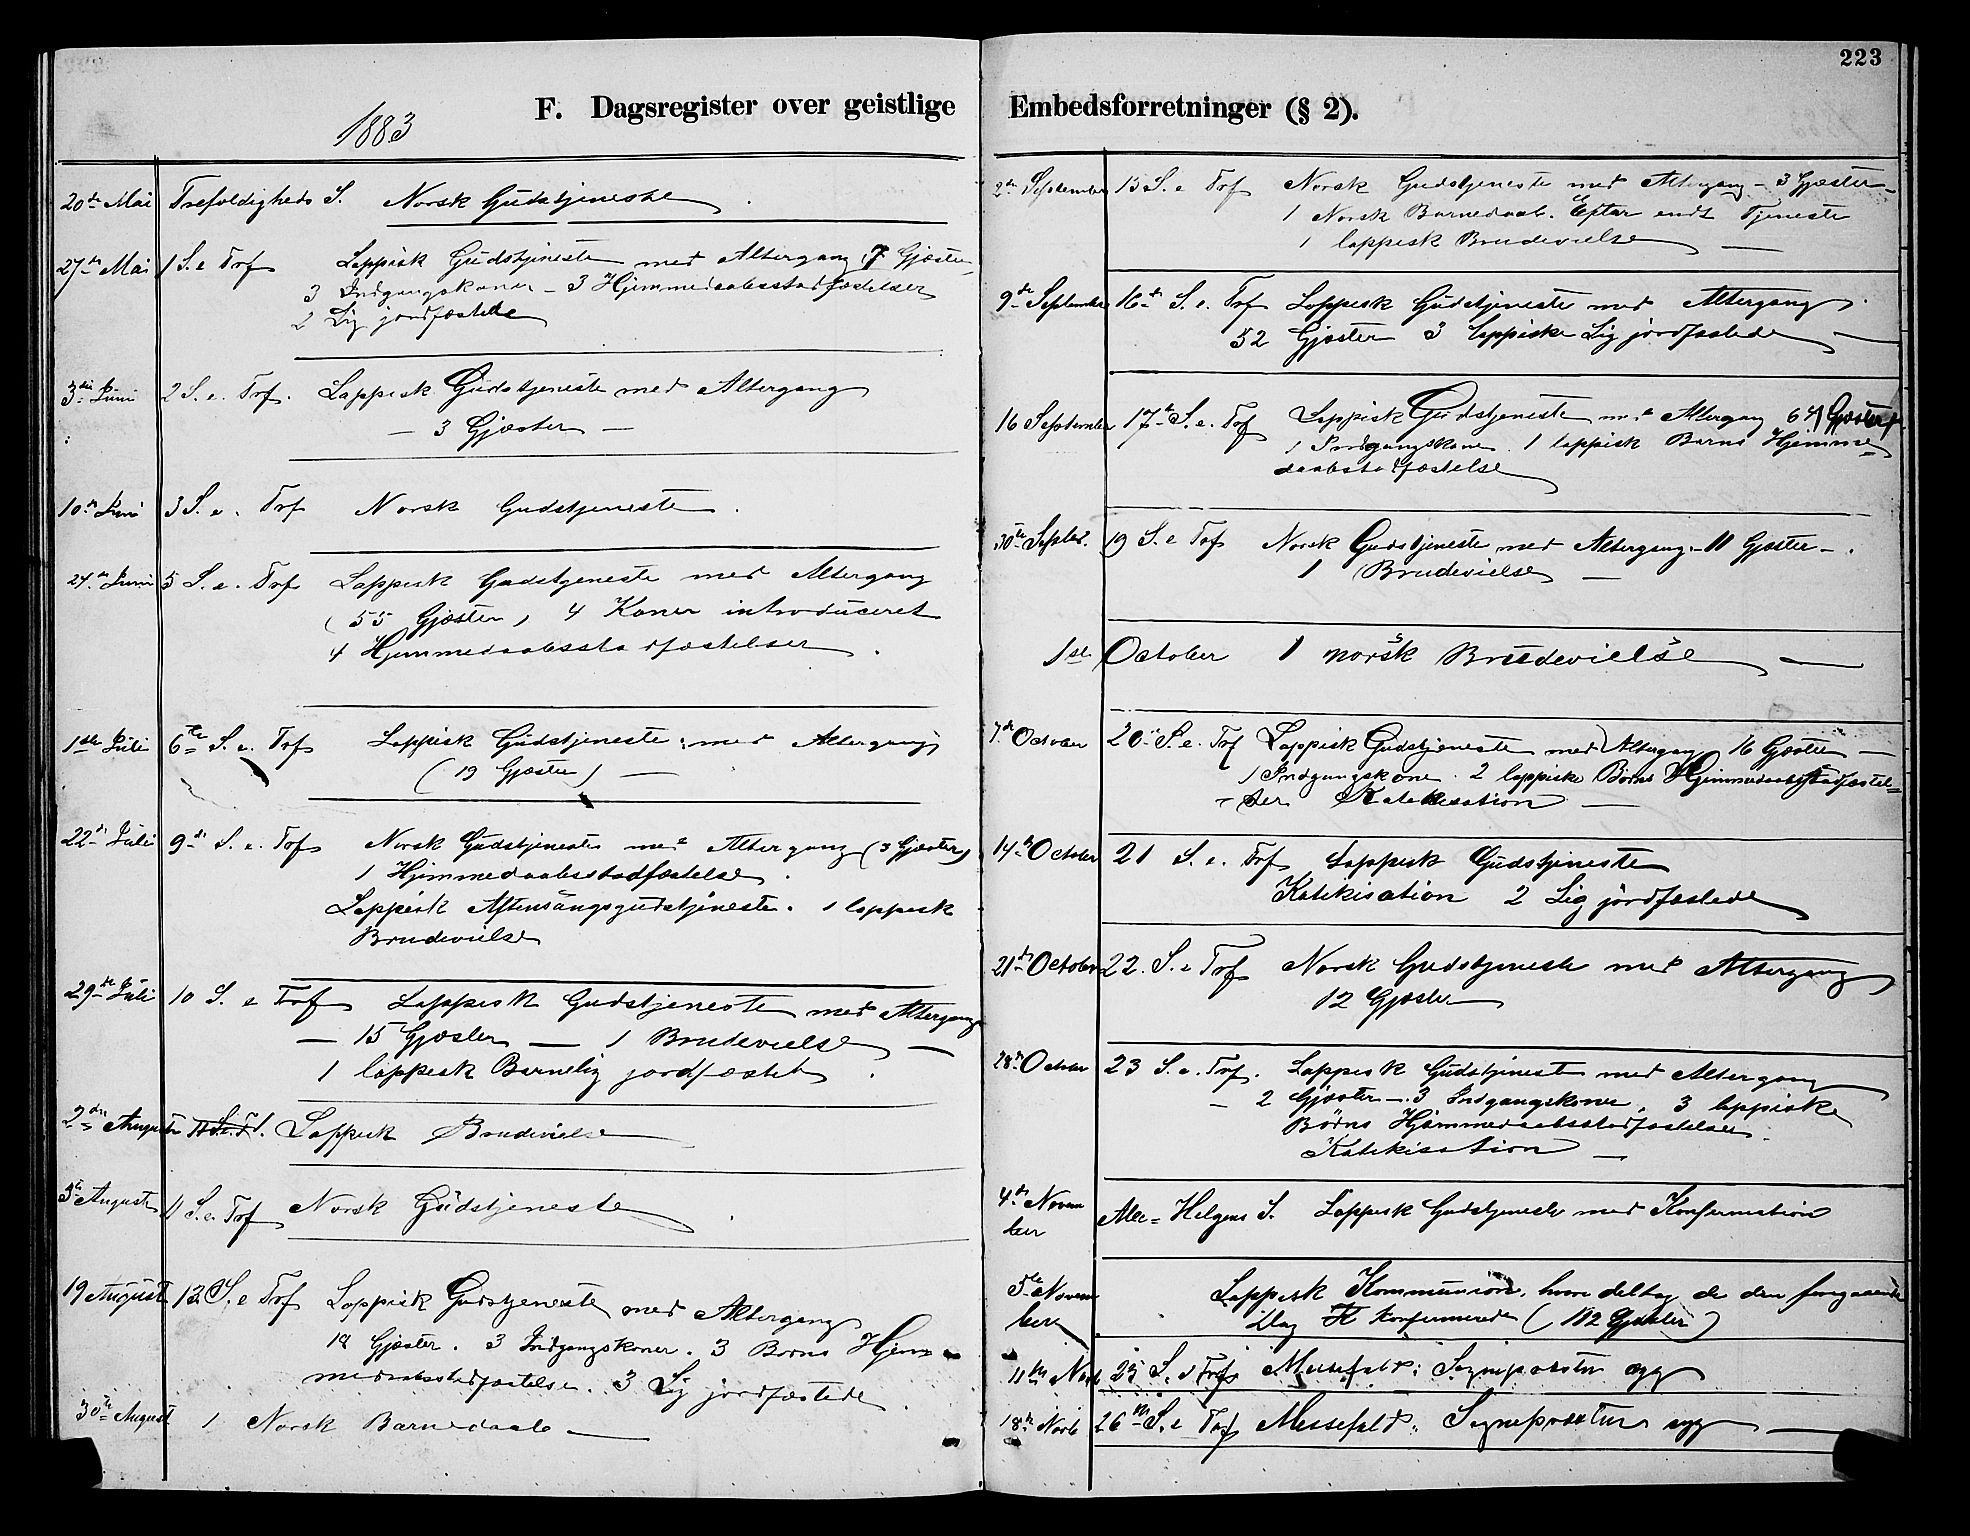 223
F. Dagsregister over geistlige Embedsforretninger (§ 2).
1883
20de Mai Trefoldigheds S. Norsk Gudstjeneste.
27de Mai 1 S. e Trf Lappisk Gudstjeneste med Altergang 7 Gjæster
3 Indgangskoner – 3 Hjemmedaabsstadfæstelser
2 Lig jordfæstede
3die Juni 2 S. e. Trf. Lappisk Gudstjeneste med Altergang
– 3 Gjæster –
10de Juni 3 S. e. Trf Norsk Gudstjeneste.
24de Juni 5 S. e. Trf Lappisk Gudstjeneste med Altergang
(55 Gjæster) 4 Koner introduceret
4 Hjemmedaabsstadfæstelser.
1ste Juli 6te S. e. Trf Lappisk Gudstjeneste med Altergang
(19 Gjæster) —
22de Juli 9de S. e. Trf Norsk Gudstjeneste med Altergang (3 Gjæster)
1 Hjemmedaabsstadfæstelse.
Lappisk Aftensangsgudstjeneste. 1 lappisk
Brudevielse
29de Juli 10 S. e Trf Lappisk Gudstjeneste med Altergang
— 15 Gjæster — 1 Brudevielse —
1 lappisk Barnelig jordfæstet.
2den August Lappisk Brudevielse
5te August 11 S. e. Trf Norsk Gudstjeneste.
19 August 13. S. e Trf Lappisk Gudstjeneste med Altergang
Gjæster. 3 Indgangskoner. 3 Børns Hjem=
medaabsstadfæstelse. 3 Lig jordfæstede.
30te August 1 Norsk Barnedaab —
2den September 15 S. e Trf Norsk Gudstjeneste med Altergang – 3 Gjæster –
1 Norsk Barnedaab. Efter endt Tjeneste
1 lappisk Brudevielse —
9de September 16de S. e. Trf Lappisk Gudstjeneste med Altergang.
52 Gjæster 3 lappiske Lig jordfæstede —
16 September 17de S. e. Trf Lappisk Gudstjeneste med Altergang Gjæster
1 Indgangskone. 1 lappisk Barns Hjemme=
daabsstadfæstelse
30te Septbr. 19 S. e Trf Norsk Gudstjeneste med Altergang – 11 Gjæster –.
1 Brudevielse —
1ste October 1 norsk Brudevielse —
7de October 20de S. e. Trf Lappisk Gudstjeneste med Altergang 16 Gjæster —
1 Indgangskone. 2 lappiske Børns Hjemmedaabsstadfæstel=
= ser Katekisation —
14de October 21 S. e. Trf Lappisk Gudstjeneste
Katekisation 2 Lig jordfæstede
21de October 22. S. e Trf Norsk Gudstjeneste med Altergang
12 Gjæster
28de October 23 S. e. Trf. Lappisk Gudstjeneste med Altergang
– 2 Gjæster –. 3 Indgangskoner, 3 lappiske
Børns Hjemmedaabsstadfæstelser.
Katekisation —
4de Novem
ber Alle= Helgens S. Lappisk Gudstjeneste med Konfirmation
5te Novem
ber Lappisk Kommunion, hvori deltog de den foregaaende
Dag Konfirmerede (112 Gjæster)
11te Novb 25 S. e Trf Messefald: Sognepræsten syg
18de Novb 26de S. e Trf Messefald: Sognepræsten syg —